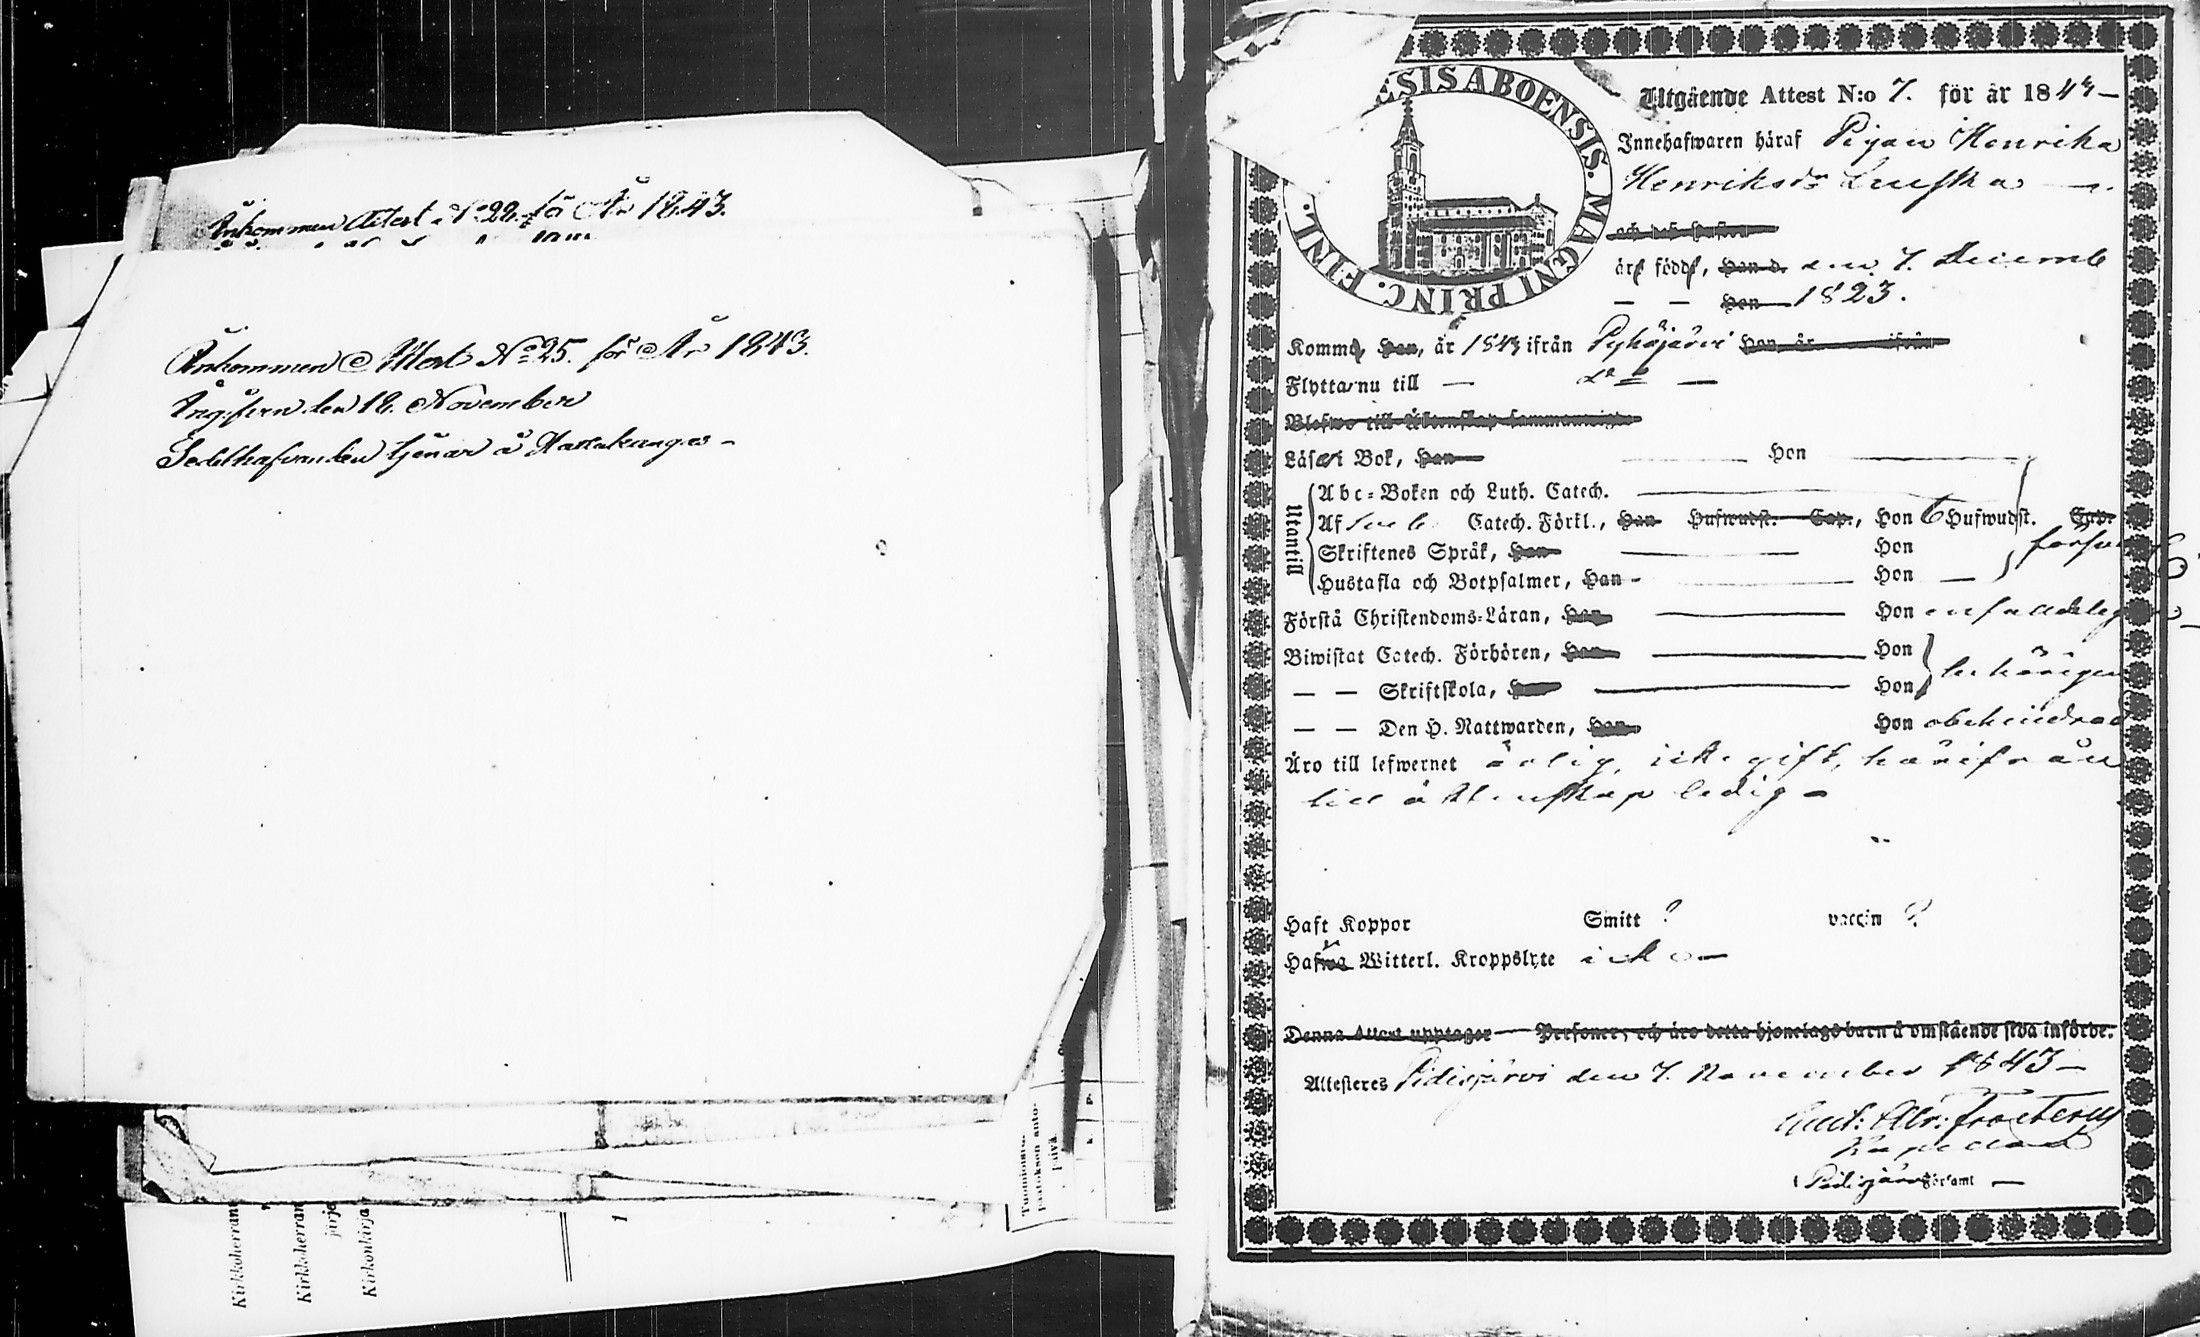 Ankommen Attest No 22. för År 1843.
Ankommen Attest No 25. för År 1843.
Ing:fven den 18. November
Sedelhafvanden tjenar å
Kirkkoherran
Kirkkoherran
järje
Kirkonkirja
1
Tuomioistu-
päätöksen anto-
päivä.
ESIS ABOENSIS. MAGNI PRINC. FINL.
Utgående Attest N:o 7. för år 1843 –
Innehafwaren häraf Pigan Henrika
Henriksdr
och dess hustru
äro födde, Han d. den 7. Decemb
— — Hon 1823.
Komme, Han, år 1843 ifrån Pyhäjärvi Hon, år ifrån
Flytta nu till — do —
Blefwo till Äktenskap sammanwigde
Läser i Bok, Han — Hon
Utantill
Abc-Boken och Luth. Catech.
Af Sveb. Catech. Förkl., Han Hufwudst. Cap., Hon 6 Hufwudst. Cap.
Skriftenes Språk, Han Hon försvarl
Hustafla och Botpsalmer, Han Hon —
Förstå Christendoms-Läran, Han Hon enfaldeg
Biwistat Catech. Förhören, Han Hon
— — Skriftskola, Han Hon behörigen
— — Den H. Nattwarden, Han Hon obehindrad
Äro till lefwernet ärlig, icke gift, härifrån
till äktenskap ledig –
Haft Koppor Smitt ? vaccin ?
Hafwa Witterl. Kroppslyte icke –
Denna Attest upptager — Personer, och äro detta hjonelags barn å omstående sida införde.
Attesteres Pidisjärvi den 7. November 1843 –
Ant: Abr: Frosterus
Kapellan
i Pidisjärvi